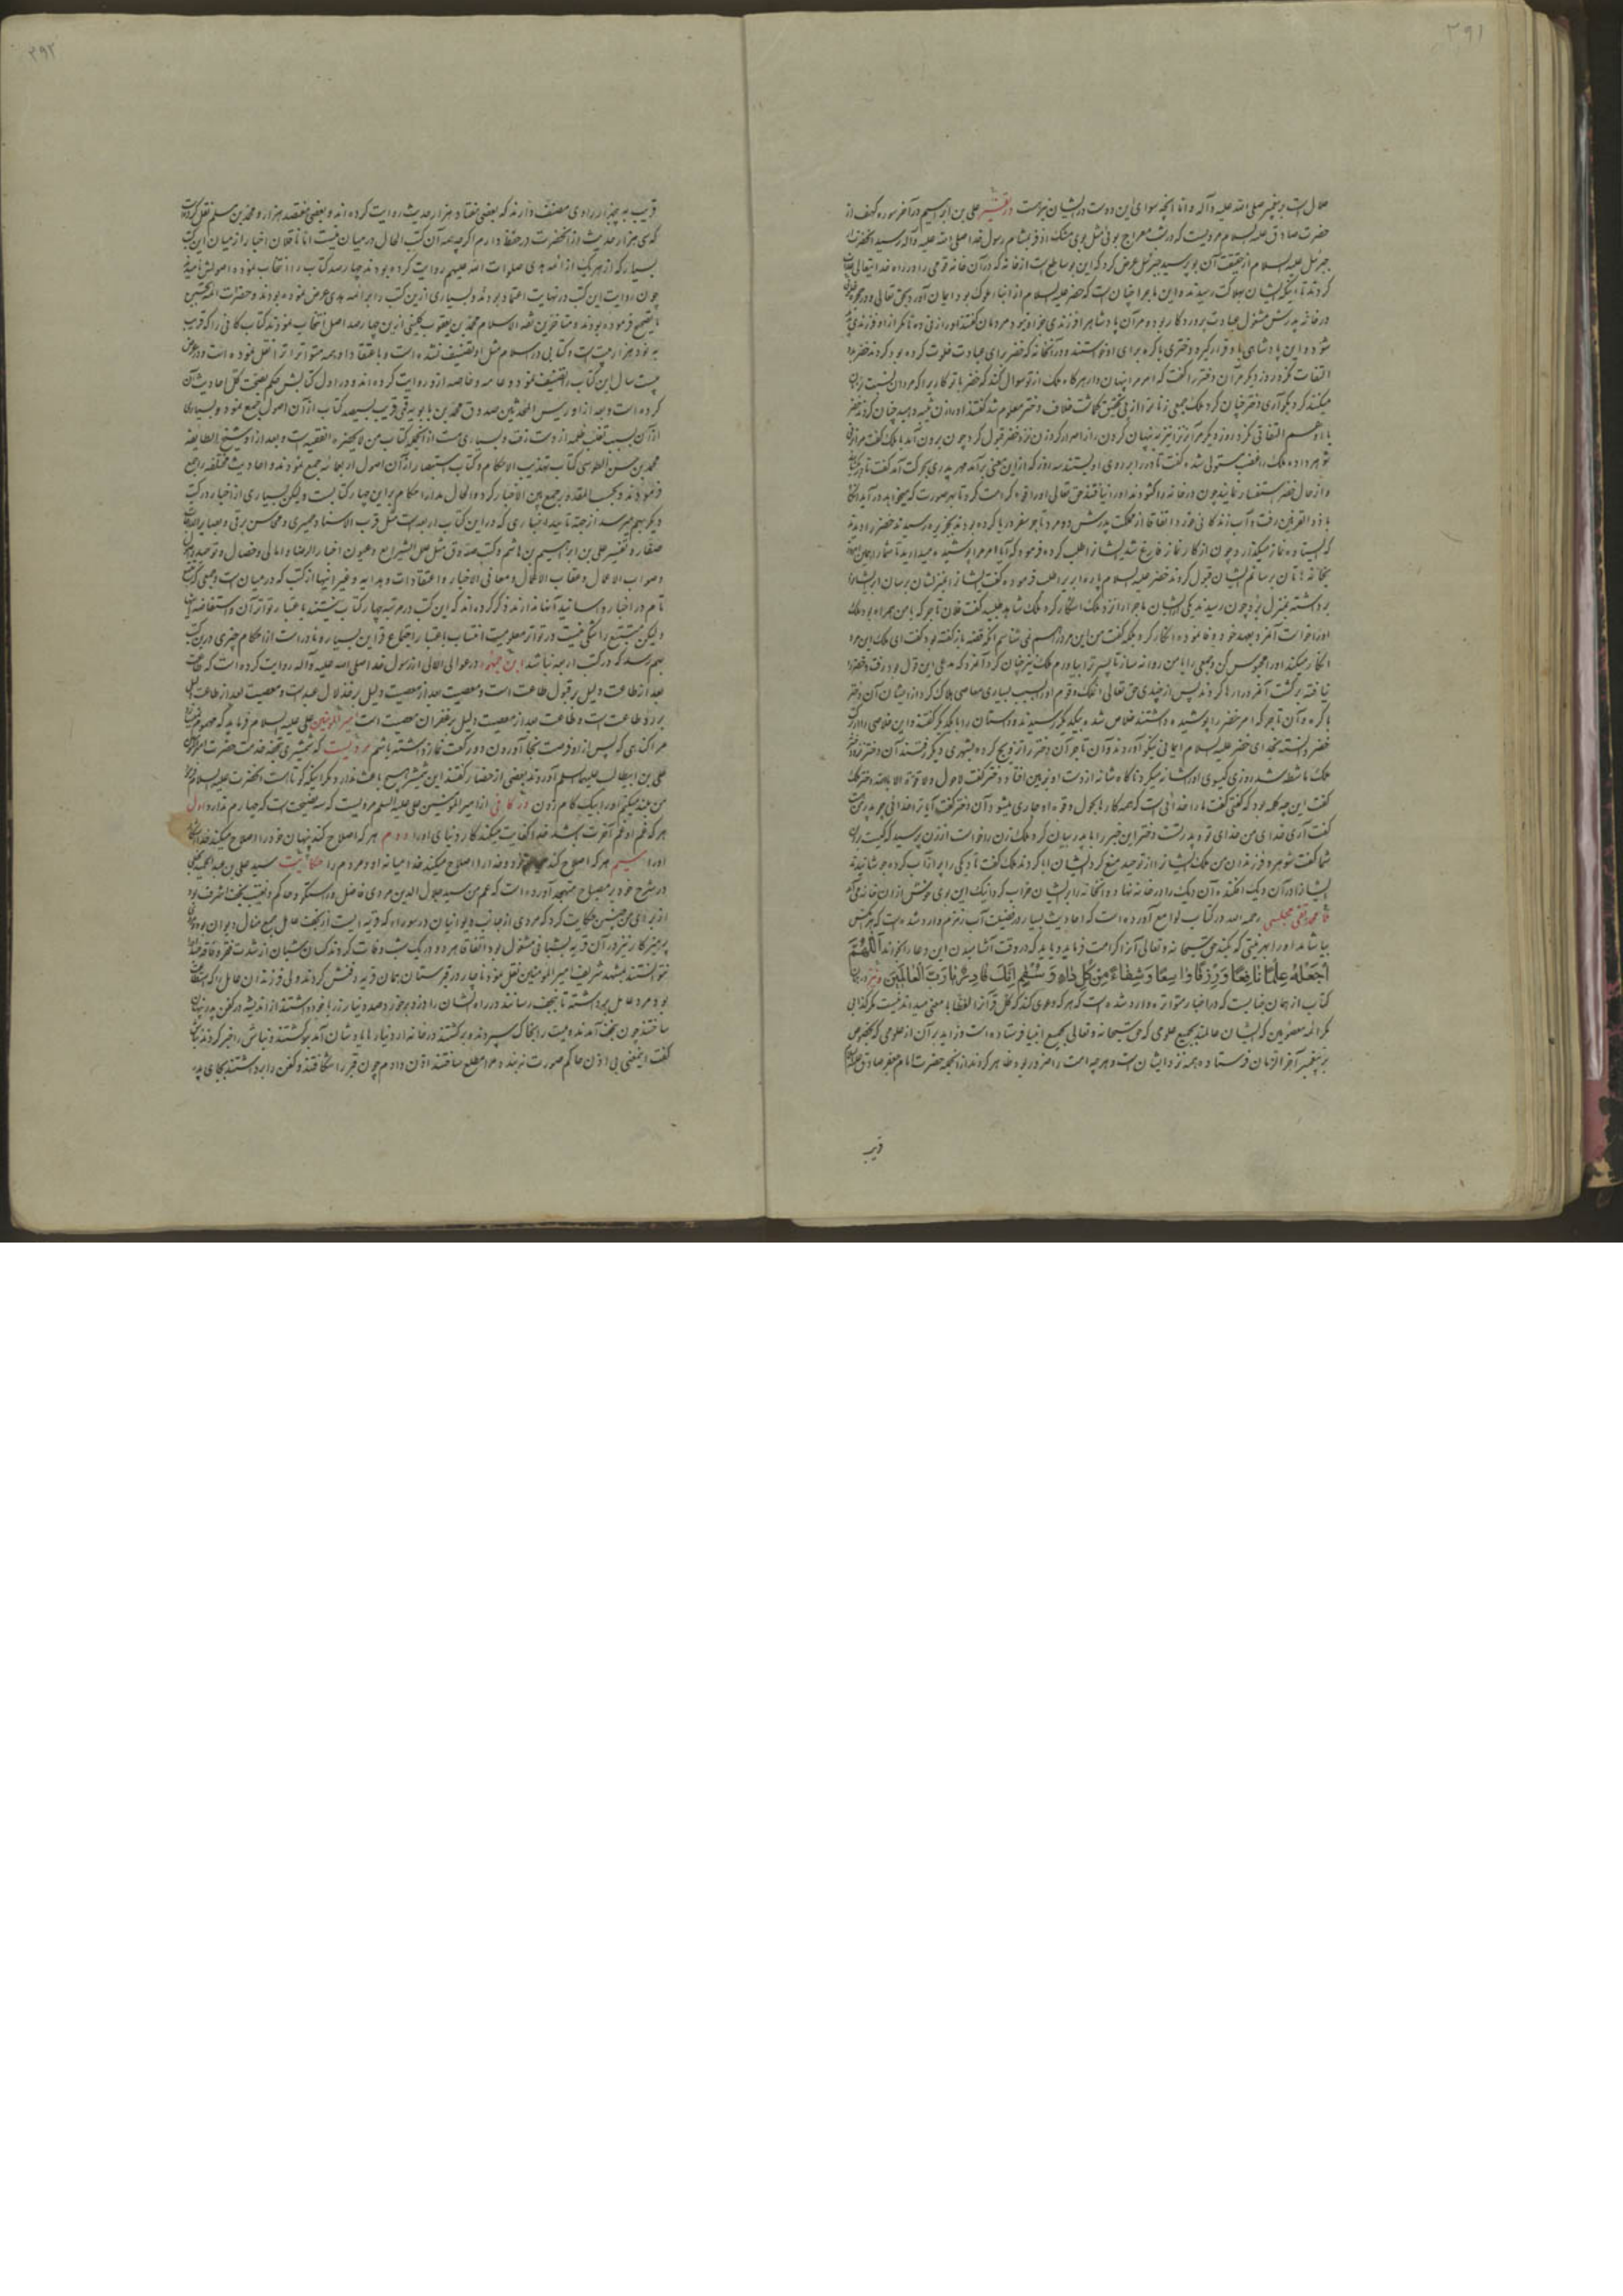 ۲۹۱
حلال است بر پیغمبر صلی الله علیه و آله و اما آنچه سوای این دوست در ایشان هست در تفسیر علی بن ابراهیم در آخر سوره کهف از
حضرت صادق علیه السلام مرویست که در شب معراج بوئی مثل بوی مشک اذفر بمشام رسول خدا صلی الله علیه و آله رسید آنحضرت از
جبرئیل علیه السلام از حقیقت آن بو پرسید جبرئیل عرض کرد که این بو ساطع است از خانه که در آن خانه قومی را در راه خدایتعالی عذاب
کردند تا اینکه ایشان بهلاکت رسیدند و این ماجرا چنان است که خضر علیه السلام از ابناء ملوک بود ایمان آورد بحق تعالی و در حجره
در خانه پدرش مشغول عبادت پروردگار بود و مر آن پادشاه را فرزندی جز او نبود مردمان گفتند او را زنی ده تا مگر از او فرزندی
شود و این پادشاهی باو قرار گیرد دختری باکره برای او خواستند و در آنخانه که خضر برای عبادت خلوت کرده بود کردند خضر باو
التفات نکرد روز دیگر مر آن دختر را گفت که امر مرا پنهان دار هر گاه ملک از تو سوال کند که خضر با تو کار یرا که مردان نسبت بزنان
میکنند کرد بگو آری دختر چنان کرد ملک جمعی زنان را از پی تحقیق گماشت خلاف دختر معلوم شد گفتند او را زن ثیبه دهید چنان کردند خضر
باو هم التفاتی نکرد روز دیگر مر آنزن را نیز به پنهان کردن راز امر کرد زن نزد خضر قبول کرد چون برون آمد با ملک گفت مرا زنی
شوهر داده ملک را غضب مستولی شده گفت تا در را بر روی او بستند سه روز که از این معنی بر آمد مهر پدری بحرکت آمد گفت تا در بگشایند
و از حال خضر استفسار نمایند چون در خانه را گشودند او را نیافتند حق تعالی او را قوتی کرامت کرد تا بهر صورت که میخواهد در آید آنگاه
با ذو القرنین رفت و آب زندگانی خورد اتفاقا از مملکت پدرش دو مرد تاجر سفر دریا کرده بودند بجزیره رسیدند خضر را دیدند
که ایستاده نماز میگذارد چون از کار نماز فارغ شد ایشانرا طلب کرده فرمود که آیا امر مرا پوشیده میدارید تا شما را همین امروز
بخانه هاتان برسانم ایشان قبول کردند خضر علیه السلام پاره ابر بر اطلب فرموده گفت ایشانرا بمنزلشان برسان ابر ایشانرا
برداشته بمنزل برد چون رسیدند یکی از ایشان ماجرا را نزد ملک آشکار کرد ملک شاهد طلبید گفت فلان تاجر که با من همراه بود ملک
او را خواست آنمرد بعهد خود وفا نموده انکار کرد و بلکه گفت من این مرد را هم نمی شناسم
انکار میکند او را محبوس کن و جمعی را با من روانه ساز تا پسر ترا بیاورم ملک نیز چنان کرد آنمرد که مدعی این قول بود رفت و خضر را
نیافته برگشت آنمرد را رها کردند پس از چندی حق تعالی آنملک و قوم او را بسبب بسیاری معاصی هلاک کرد از ایشان آن دختر
باکره و آن تاجر که امر خضر را پوشیده داشتند خلاص شده بیکدیگر رسیدند داستان را با یکدیگر گفتند و این خلاصی را از برکت
خضر دانسته بخدای خضر علیه السلام ایمانی نیکو آوردند و آن تاجر آن دختر را تزویج کرده بشهری دیگر رفتند آن دختر نزد دختر
ملک ماشطه شد روزی گیسوی او را شانه میکرد ناگاه شانه از دست او بزمین افتاد دختر گفت لا حول و لا قوة الا بالله دختر ملک
گفت این چه کلمه بود که گفتی گفت ما را خدائی است که همه کارها بحول و قوه او جاری میشود آن دختر گفت آیا ترا خدائی جز پدر من است
گفت آری خدای من خدای تو و پدر تست دختر این خبر را با پدر بیان کرد ملک زن را خواست از زن پرسید که کیست برین
شما گفت شوهر و فرزندان من ملک ایشانرا از توحید منع کرد ایشان ابا کردند ملک گفت تا دیگی را پر از آب کرده جوشانیدند
ایشانرا در آن دیک افکند و آن دیک را در خانه نهاده و آنخانه را بر ایشان خراب کرد اینک این بوی خوش از آن خانه می آید
محمد تقی مجلسی رحمه الله در کتاب لوامع آورده است که احادیث بسیار در فضیلت آب زمزم وارد شده است که هر کس
بیاشامد او را بهر نیتی که بکند حق سبحانه و تعالی آنرا کرامت فرماید و باید که در وقت آشامیدن این دعا را بخواند اَللّٰهُمَّ
اجْعَلْهُ عِلْمًا نَافِعًا وَرِزْقًا وَاسِعًا وَشِفَاءً مِنْ كُلِّ دَاءٍ وَسُقْمٍ اِنَّكَ قَادِرٌ يَا رَبَّ الْعَالَمِينَ و نیز در آن
کتاب از همان جنابست که در اخبار متواتره وارد شده است که هر که دعوی کند که کل قرآنرا لفظا با معنی میداند نیست مگر کذابی
مگر ائمه معصومین که ایشان عالمند بجمیع علومی که حق سبحانه و تعالی بجمیع انبیا فرستاده است و زاید بر آن از علومی که بخصوص
بر پیغمبر آخر الزمان فرستاده همه نزد ایشان است و هر چه امت را ضرور بود ظاهر کردند از آنجمله حضرت امام جعفر صادق علیه السلام
قریب
۲۹۲
قریب به چهار هزار راوی مصنف دارند که بعضی هفتاد هزار حدیث روایت کرده اند و بعضی هفتصد هزار و محمد بن مسلم نقل کرده است
که سی هزار حدیث از آنحضرت در حفظ دارم اگر چه همه آن کتب الحال در میان نیست اما ناقلان اخبار از میان این کتب
بسیار که از هر یک از ائمه هدی صلوات الله علیهم روایت کرده بودند چهار صد کتاب را انتخاب نموده و اصولش نامیدند
چون روایت این کتب در نهایت اعتماد بودند و بسیاری از این کتب را بر ائمه هدی عرض نموده بودند و حضرات ائمه تحسین
یا تصحیح فرموده بودند و متاخرین ثقة الاسلام محمد بن یعقوب کلینی از این چهار صد اصل انتخاب نمودند کتاب کافی را که قریب
به نود هزار بیت است و کتابی در اسلام مثل او تصنیف نشده است و باعتقاد او همه متواتر انرا نقل نموده است و در عرض
بیست سال این کتاب را تصنیف نمود و عامه و خاصه از او روایت کرده اند و در اول کتابش حکم بصحت کل احادیث آن
کرده است و بعد از او رئیس المحدثین صدوق محمد بن بابویه قمی قریب بسیصد کتاب از آن اصول جمع نمود و بسیاری
از آن بسبب تغلب ظلمه از دست رفت و بسیاری هست از آنجمله کتاب من لا یحضره الفقیه است و بعد از او شیخ الطایفه
محمد بن حسن الطوسی کتاب تهذیب الاحکام و کتاب استبصار از آن اصول اربعمائه جمع نمودند و احادیث مختلفه را جمع
فرمودند و بحسب المقدور جمع بین الاخبار کرد و الحال مدار احکام بر این چهار کتابست و لیکن بسیاری از اخبار در کتب
دیگر بهم میرسد از جهة تایید اخباری که در این کتاب اربعه است مثل قرب الاسناد حمیری و محاسن برقی و بصایر الدرجات
صفار و تفسیر علی بن ابراهیم بن هاشم و کتب صدوق مثل علل الشرایع و عیون اخبار الرضا و امالی و خصال و توحید
و ثواب الاعمال و عقاب الاعمال و معانی الاخبار و اعتقادات و هدایه و غیر اینها از کتب که در میان است و جمعی که تتبع
تام در اخبار و اسانید آنها ندارند ذکر کرده اند که این کتب در مرتبه چهار کتاب نیستند باعتبار تواتر آن و استفاضه این
و لیکن متتبع را شکی نیست در تواتر معلومیت انتساب باعتبار اجتماع قراین بسیار و نادر است از احکام چیزی در این کتب
بهم رسد که در کتب اربعه نباشد ابن جمهور در عوالی اللئالی از رسول خدا صلی الله علیه و آله روایت کرده است که طاعت
بعد از طاعت دلیل بر قبول طاعت است و معصیت بعد از معصیت دلیل بر خذلان عبد است و معصیت بعد از طاعت دلیل
بر رد طاعت است و طاعت بعد از معصیت دلیل بر غفران معصیت است امیر المومنین علی علیه السلام فرماید که مهموم نمیسازد
مرا گناهی که پس از او فرصت بجا آوردن دو رکعت نماز داشته باشم مرویست که شمشیری بتحفه خدمت حضرت امیر المومنین
علی بن ابیطالب علیهما السلم آوردند بعضی از حضار گفتند این شمشیر هیچ باعث ندارد مگر اینکه کوتاه است آنحضرت علیه السلام فرمود
من بلند میکنم او را بیک گام زدن در کافی از امیر المومنین علی علیه السلم مرویست که سه نصیحت است که چهارم ندارد اول
هر که غم او غم آخرت باشد خدا کفایت میکند کار دنیای او را دوم هر که اصلاح کند پنهان خود را اصلاح میکند خدا آشکار
او را سیم هر که اصلاح کند خود و خدا را اصلاح میکند خدا میانه او و مردم را حکایت سید علی بن عبد الحمید نجفی
در شرح خود بر مصباح متهجد آورده است که عم من سید جلال الدین مردی فاضل و راستگو و حاکم و نقیب نجف اشرف بود
از برای من چنین حکایت کرد که مردی از جانب دیوانیان در سوراء که قریه ایست از نجف عامل جمع منال دیوان بود
پرهیزکار نیز در آن قریه بشبانی مشغول بود اتفاقا هر دو در یک شب وفات کردند کسان شبان از شدت فقر و فاقه
نتوانستند بمشهد شریف امیر المومنین نقل نمود ناچار در قبرستان همان قریه دفنش کردند ولی فرزندان عامل
بود مرد عامل برداشته تا بنجف رسانند در راه ایشان را دزد برخورد صد دینار زر با خود داشتند از اندیشه در کفن پدر پنهان
ساختند چون بنجف آمدند و میت را بخاک سپردند و برگشتند در خانه از دینارها یادشان آمد برگشتند و نباش را خبر کردند نباش
گفت اینمعنی بی اذن حاکم صورت نبندد مرا مطلع ساختند اذن دادم چون قبر را شکافتند و کفن را برداشتند بجای پدر